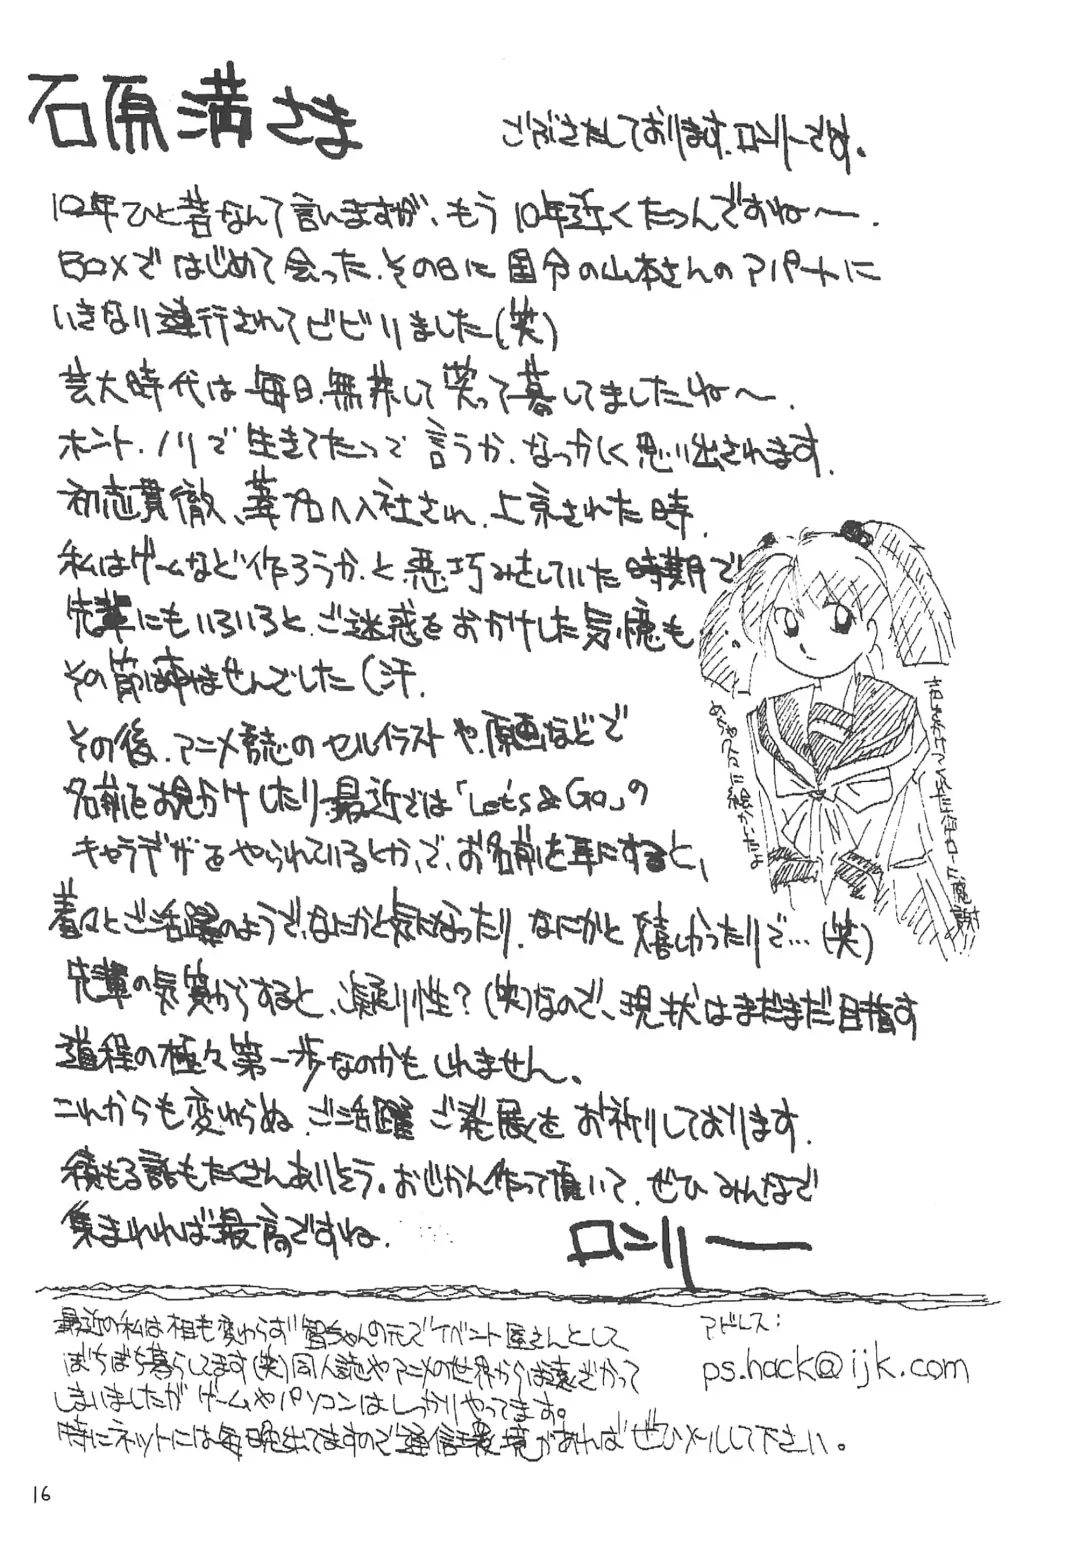 石原満さま
ごぶさたしております、ロンリーです。
10年ひと昔なんて言いますが、もう10年近くたつんですね〜.
BOXではじめて会った、その日に国分の山本さんのアパートに
いきなり連行されてビビりました(笑)
芸大時代は毎日、無茶して笑って暮してましたね〜.
ホント、ノリで生きてたって言うか、なつかしく思い出されます.
初志貫徹、葦プロへ入社され、上京された時、
私はゲームなど作ろうか、と悪巧みをしていた時期で
先輩にもいろいろと、ご迷惑をおかけした気憶も
その節はすみませんでした(汗.
その後、アニメ誌のセルイラストや、原画などで
名前をお見かけしたり、最近では「Let's & Go」の
キャラデザをやられているとかで、お名前を耳にすると、
着々とご活躍のようで、なにかと気になったり、なにかと嬉しかったりで…(笑)
先輩の気質からすると、凝り性?(笑)なので、現状はまだまだ目指す
道程の極々第一歩なのかもしれません。
これからも変わらぬ、ご活躍ご発展をお祈りしております.
積もる話もたくさんありそう。おじかん作って頂いて、ぜひみんなで
集まれれば最高ですね.
ロンリー
最近の私は相も変わらず の元でイベント屋さんとして
ぼちぼち暮らしてます(笑)同人誌やアニメの世界からは遠ざかって
しまいましたがゲームやパソコンはしっかりやってます。
時にネットには毎晩出てますので通信環境があればぜひメールして下さい。
アドレス:
ps.hack@ijk.com
16